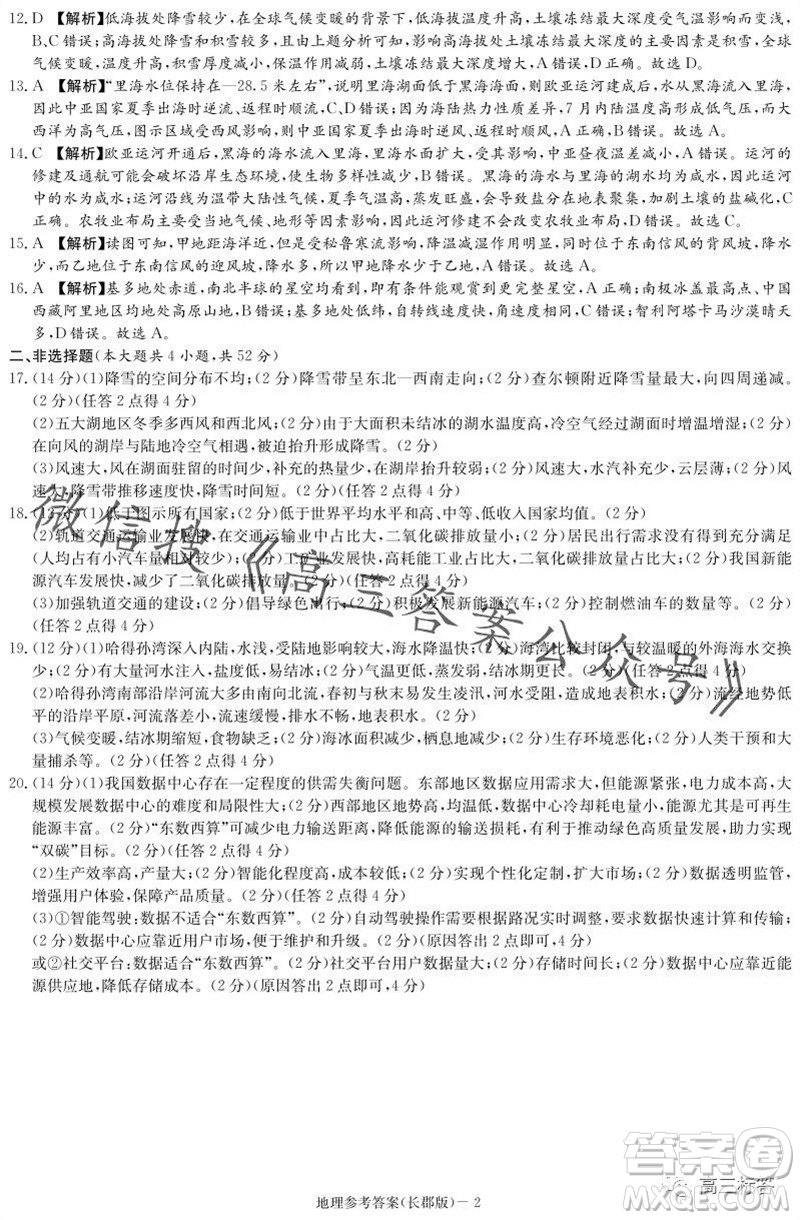 12. D 【解析】低海拔处降雪较少,在全球气候变暖的背景下,影响低海拔处土壤冻结最大深度受气温影响而变浅,
B、C错误;高海拔处降雪和积雪较多,由上题分析可知,影响高海拔处土壤冻结最大深度的主要因素是积雪,全球
气候变暖,温度升高,积雪厚度减小,保温作用减弱,土壤冻结的最大深度增加,A错误,D正确。故选D。
13. A 【解析】“里海水位保持在—28.5米左右”,说明里海湖面低于黑海海面,则欧亚运河建成后,水从黑海流入里海,
因此,中亚国家夏季出海时逆流、返程时顺流,A正确,C错误;因为海陆热力性质差异,7月内陆温度高形成低压,大
西洋为高气压,图示区域受西风影响,则中亚国家夏季出海时逆风、返程时顺风,B、D错误。故选A。
14. C 【解析】欧亚运河开通后,黑海的海水流入里海,里海水面扩大,中亚昼夜温差减小,A错误。运河的
修建及通航可能会破坏沿岸生态环境,使生物多样性减少,B错误。黑海的海水与里海的湖水均为咸水,因此
运河的水为咸水;运河沿线为温带大陆性气候,夏季气温高,蒸发旺盛,会导致盐分在地表聚集,加剧土壤的盐碱化,C
正确。农牧业布局主要受当地气候、地形等因素影响,因此运河修建不会改变农牧业布局,D错误。故选C。
15. A 【解析】读图可知,甲地距海洋近,但是受秘鲁寒流影响,降温减湿作用明显,又位于东南信风的背风坡,降水
少,而乙地位于东南信风的迎风坡,降水多,所以甲地降水少于乙地,A错误。故选A。
16. A 【解析】基多地处赤道,南北半球的星空均可看到,即有条件能观赏到更完整星空,A正确;南极冰盖最高点、中
国西藏阿里地区均地处高原山地,B错误;基多地处低纬,自转线速度快,C错误;智利阿塔卡马沙漠晴天
多,D错误。故选A。
二、非选择题(本大题共4小题,共52分)
17. (14分)(1)降雪的空间分布不均;(2分)降雪带呈东北—西南走向;(2分)查尔顿附近降雪量最大,向四周递减。
(2分)(任答2点得4分)
(2)五大湖地区冬季多西风和西北风;(2分)由于大面积未结冰的湖水温度高,冷空气经过湖面时增温增湿;(2分)
在向风的湖岸与陆地冷空气相遇,被迫抬升形成降雪。(2分)
(3)风速大,风在湖面驻留的时间少,补充的热量少,在湖岸抬升较弱;(2分)风速大,水汽补充少,云层薄;(2分)
风速大,降雪带推移速度快,降雪时间短。(2分)(任答2点得4分)
18. (12分)(1)低于图示所有国家;(2分)低于世界平均水平和高、中等、低收入国家均值。(2分)
(2)轨道交通运输业发展快,在交通运输业中占比大;(2分)居民出行需求没有得到充分满足
(人均占有小汽车量相对较少);(2分)工矿业发展快,高耗能工业占比大,二氧化碳排放量占比大;(2分)我国新能
源汽车发展快,减少了二氧化碳排放量。(2分)(任答2点得4分)
(3)加强轨道交通的建设;(2分)倡导绿色出行;(2分)积极发展新能源汽车;(2分)控制燃油车的数量等。(2分)
(任答2点得4分)
19. (12分)(1)哈得孙湾深入内陆,水浅,受陆地影响较大,海水降温快;(2分)海湾比较封闭,与较温暖的外海海水交换
少;(2分)有大量河水注入,盐度低,易结冰;(2分)气温更低,蒸发弱,结冰期更长。(2分)
(2)哈得孙湾南部沿岸河流大多由南向北流,春初与秋末易发生凌汛,河水受阻,造成地表积水;(2分)流经地势低
平的沿岸平原,河流落差小,流速缓慢,排水不畅,地表积水。(2分)
(3)气候变暖,结冰期缩短,食物缺乏;(2分)海冰面积减少,栖息地减少;(2分)生存环境恶化;(2分)人类干扰与大
量捕杀等。(2分)(任答2点得4分)
20. (14分)(1)我国数据中心存在一定程度的供需失衡问题。东部地区数据应用需求大,但能源紧张,电力成本高,大
规模发展数据中心的难度和局限性大;(2分)西部地区地势高,均温低,数据中心冷却耗电量小,能源尤其是可再生
能源丰富。(2分)“东数西算”可减少电力输送距离,降低能源的输送损耗,有利于推动绿色高质量发展,实现
“双碳”目标。(2分)(任答2点得4分)
(2)生产效率高,产量大;(2分)智能化程度高,成本较低;(2分)实现个性化定制,扩大市场;(2分)数据透明监管,
增强用户体验,保障产品质量。(2分)(任答2点得4分)
(3)①智能驾驶:数据不适合“东数西算”。(2分)自动驾驶操作需要根据路况实时调整,要求数据快速计算和传输;
(2分)数据中心应靠近用户市场,便于维护和升级。(2分)
或②社交平台:数据适合“东数西算”。(2分)社交平台用户数据量大;(2分)存储时间长;(2分)数据中心应靠近能
源供应地,降低存储成本。(2分)(原因答出2点即可,4分)
微信搜《高三答案公众号》
答案圈
高三标答
MXQE.COM
地理参考答案(长郡版)— 2